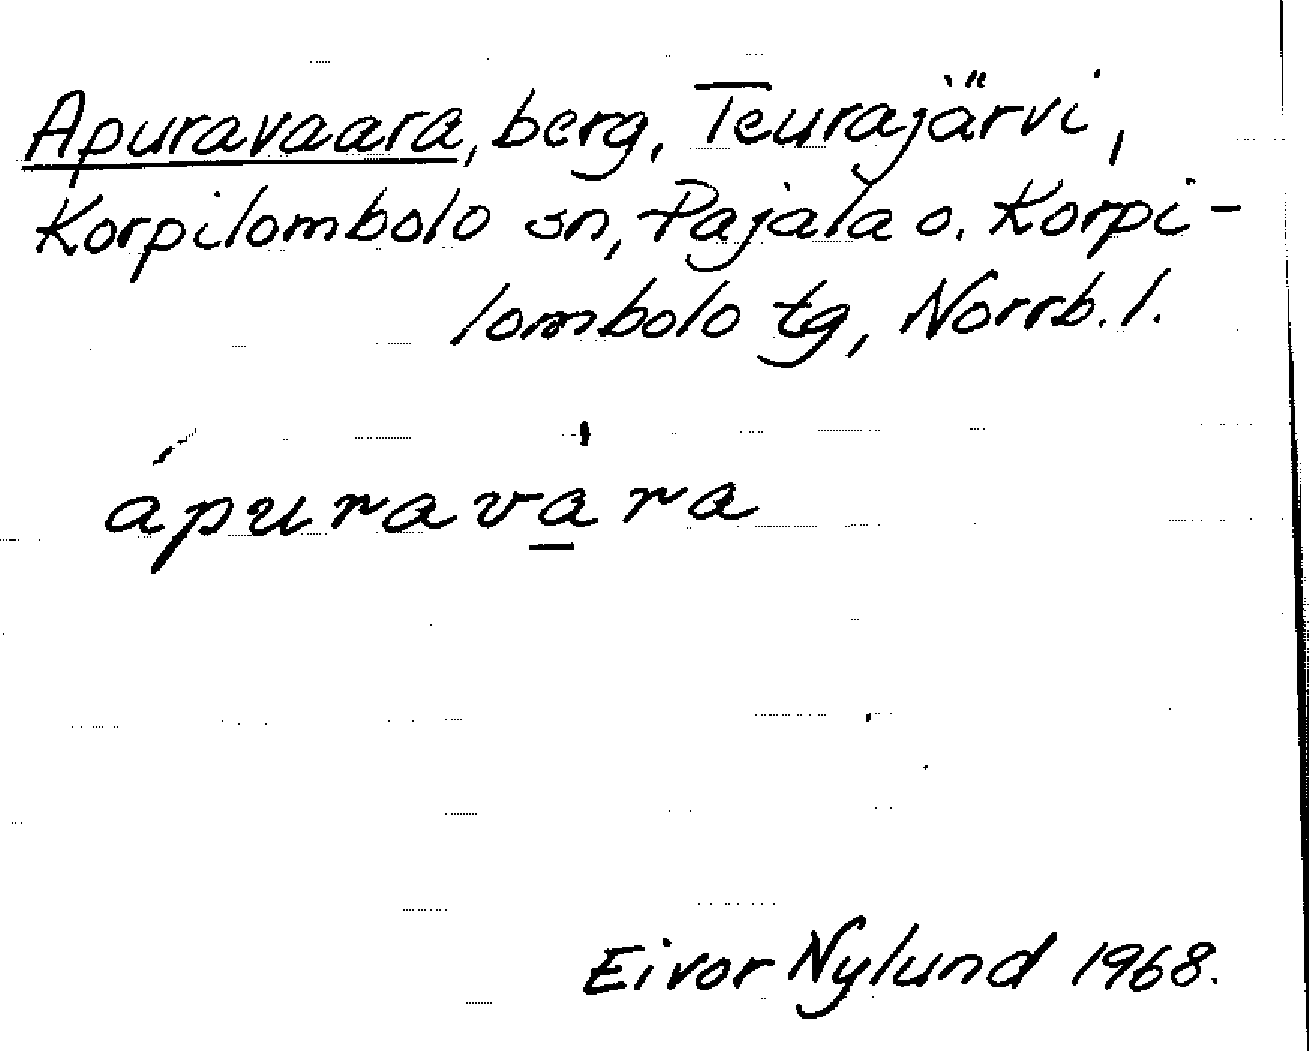 Apuravaara, berg, Teurajärvi,
Korpilombolo sn, Pajala o. Korpi-
lombolo tg, Norrb. l.
ápurava̲̍ra
Eivor Nylund 1968.